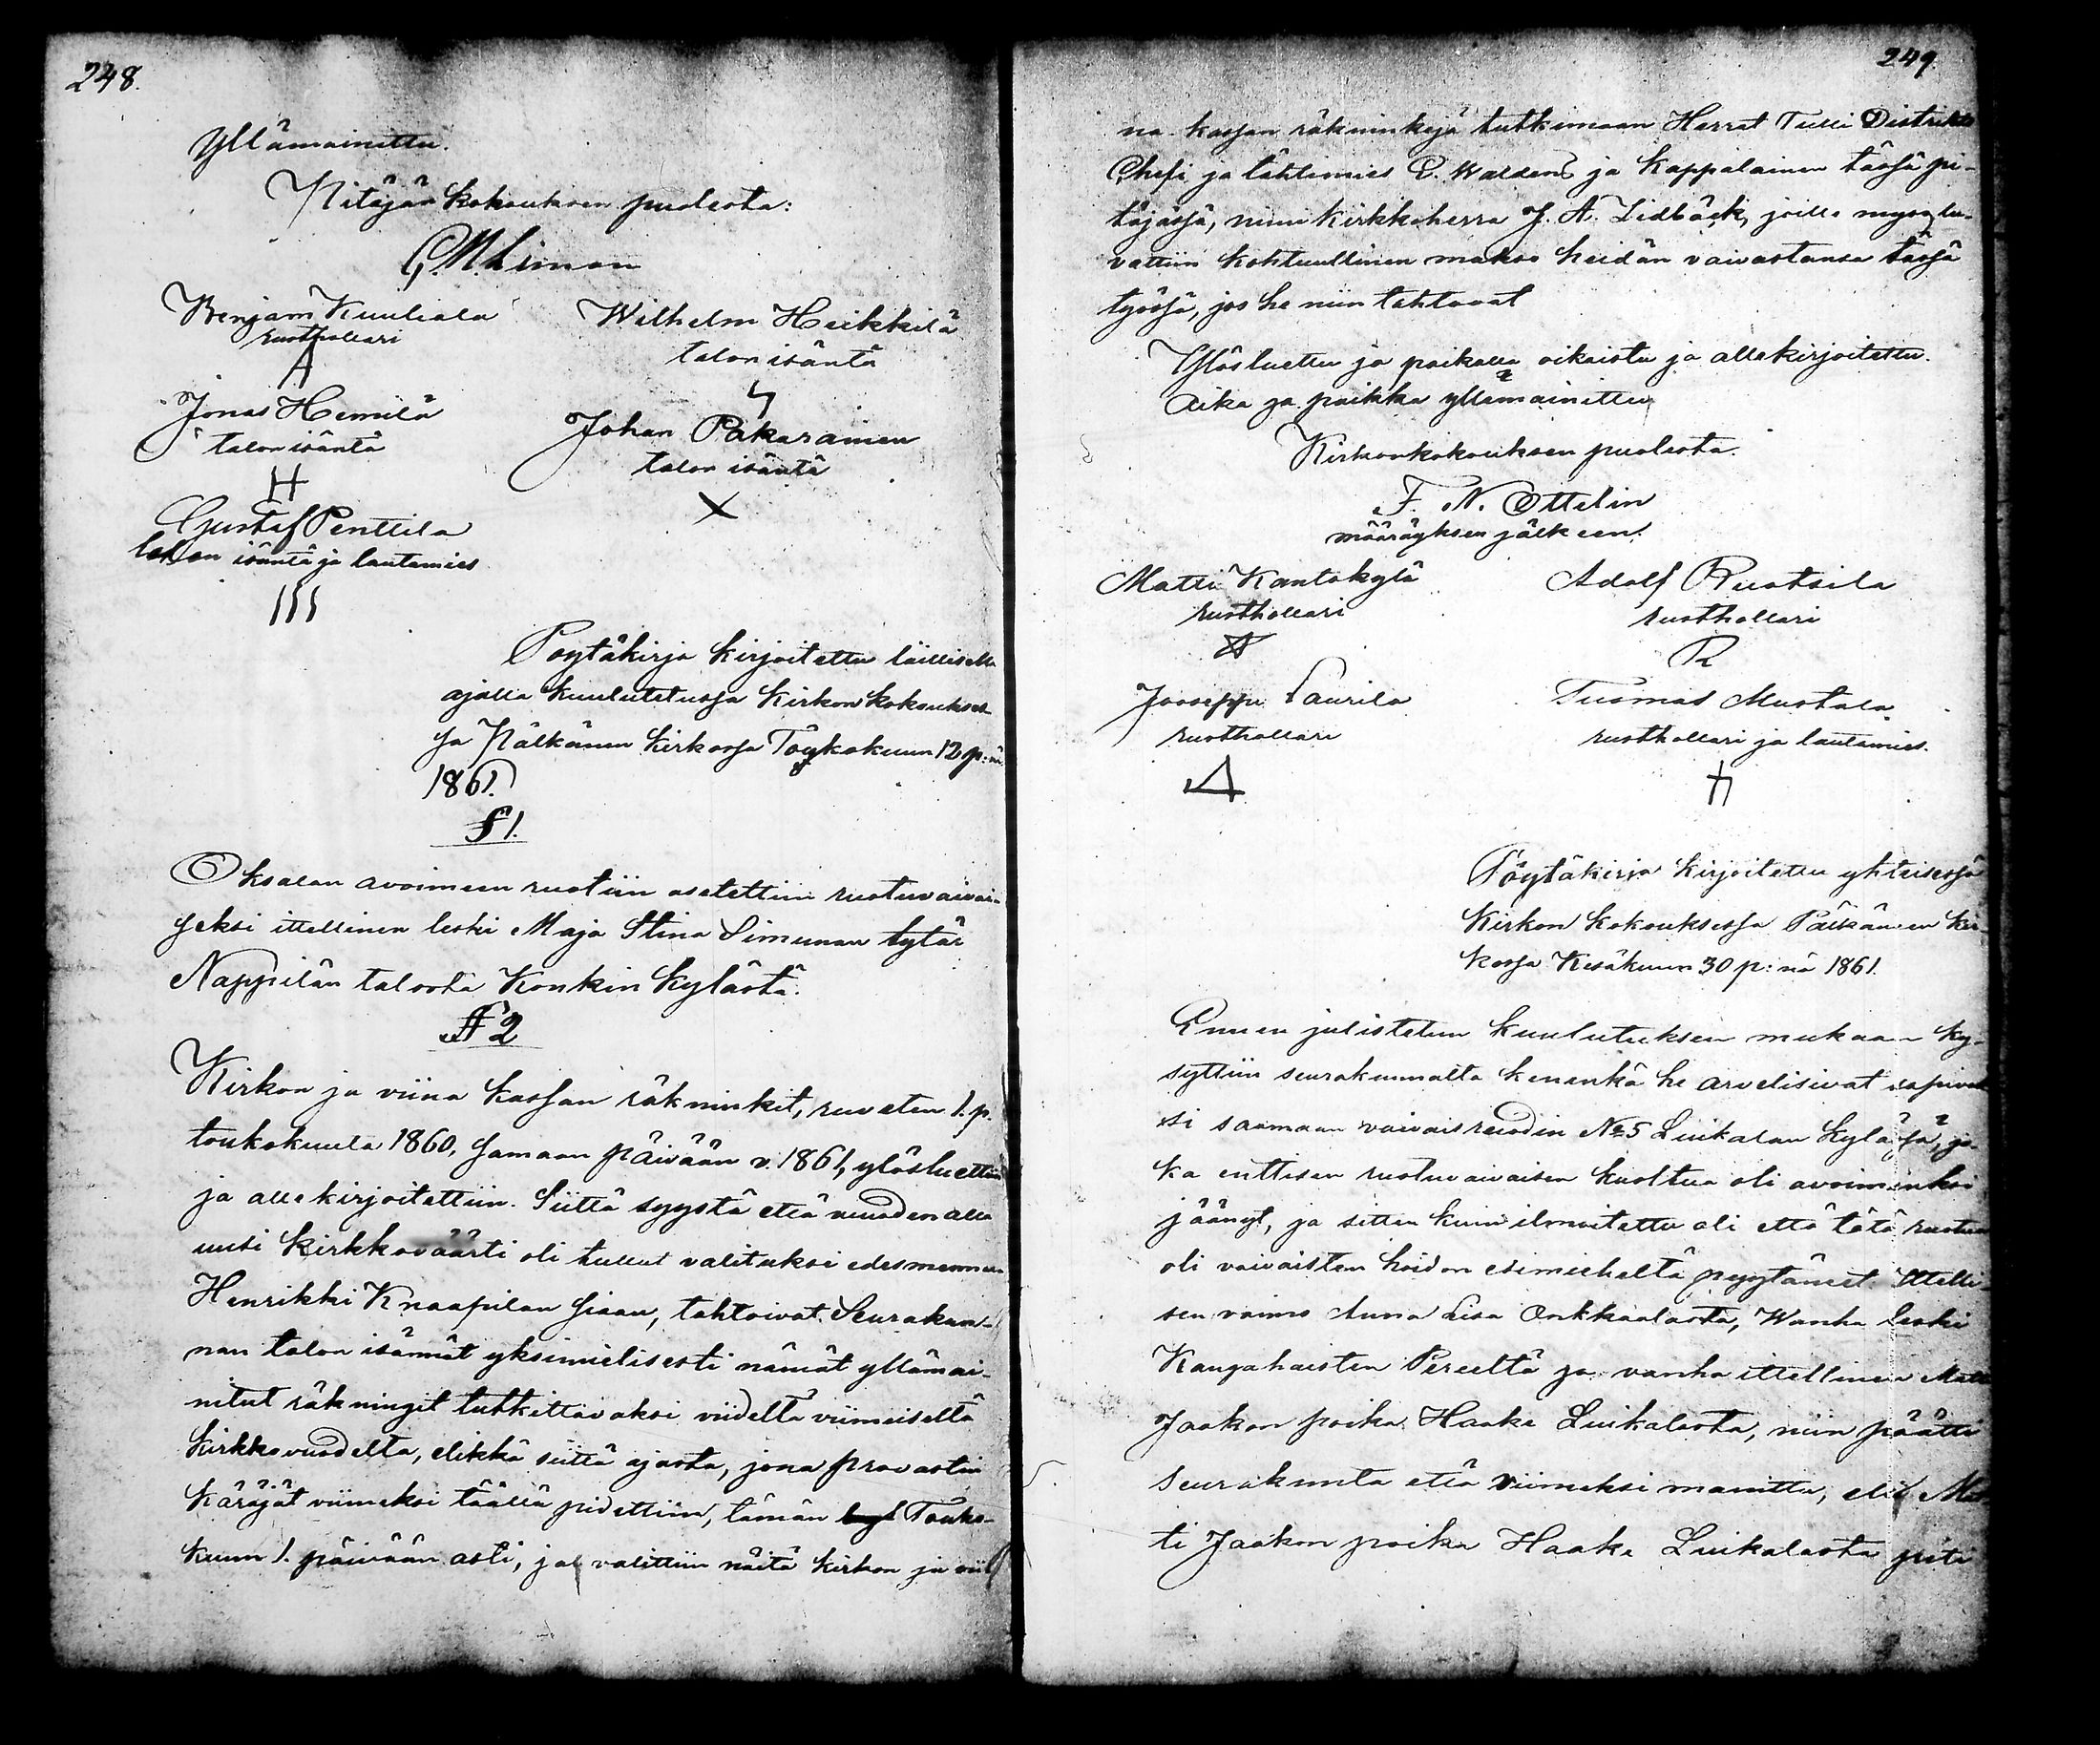 248.
Yllämainittu.
Pitäjän kokouksen puolesta:
G. M. Limon
Benjam Kuuliala
rusthollari
A
Wilhelm Heikkilä
talon isäntä
Jonas Hemilä
talon isäntä
H
Johan Pakarainen
talon isäntä
X
Gustaf Penttila
talon isäntä ja lautamies
Pöytäkirja kirjoitettu laillisella
ajalla kuulutetussa Kirkon kokoukses-
sa Pälkänen kirkossa Toykokuun 12 p:nä
1861.
§ 1.
Oksalan avoimeen ruotiin asetettiin ruotuvaivai-
seksi ittellinen leski Maja Stina Simunan tytär
Nappilän talosta Konkin kylästä.
§ 2
Kirkon ja viina kassan räkninkit, ruveten 1. p.
toukokuuta 1860, samaan päivään v. 1861, ylösluettiin
ja allekirjoitettiin. Siittä syystä että vuoden alla
uusi kirkkoväärti oli tullut valituksi edesmennen
Henrikki Knaapilan siaan, tahtoivat Seurakun-
nan talon isännät yksimielisesti nämät yllämai-
nitut räkningit tutkittavaksi viideltä viimeiseltä
kirkkovuodelta, elikkä siittä ajasta, jona provastin
käräjät viimeksi täällä pidettiin, tämän Touko-
kuun 1. päivään asti, ja valittiin näitä kirkon ja vii
249.
na kassan räkninkejä tutkimaan Herrat Tulli Distrikts
Chefi ja tähtimies C. Walden ja Kappalainen tässä pi-
täjässä, nimi kirkkoherra J. A. Lidbäck, joille myös lu-
vattiin kohtuullinen makso heidän vaivastansa tässä
työssä, jos he niin tahtovat
Ylösluettu ja paikalla oikaistu ja allekirjoitettu.
Aika ja paikka yllämainittu
Kirkonkokouksen puolesta.
F. N. Ottelin
määräyksen jälkeen.
Matti Kantokylä
rusthollari
Adolf Ruotsila
rusthollari
R
Jooseppi Laurila
rusthollari
Tuomas Mustala
rusthollari ja lautamies.
Pöytäkirja kirjoitettu yhteisessä
Kirkon kokouksessa Pälkänen kir
kossa Kesäkuun 30 p:nä 1861.
Ennen julistetun kuulutuksen mukaan ky-
syttiin seurakunnalta kenenkä he arvelisivat sopivak
si saamaan vaivaisruodin No 5 Luikalan kylässä, jo-
ka enttisen ruotuvaivaisen kuoltua oli avoimenksi
jäänyt, ja sitten kuin ilmoitettu oli että tätä ruotua
oli vaivaisten hoidon esimieheltä pyytäneet Ittelli-
sen vaimo Anna Lisa Onkkaalasta, Wanha leski
Kangahaisten Pereeltä ja vanha ittellinen Matti
Jaakon poika Haake Luikalasta, niin päätti
Seurakunta että viimeksi manittu, eli Mat
ti Jaakon poika Haake Luikalasta piti